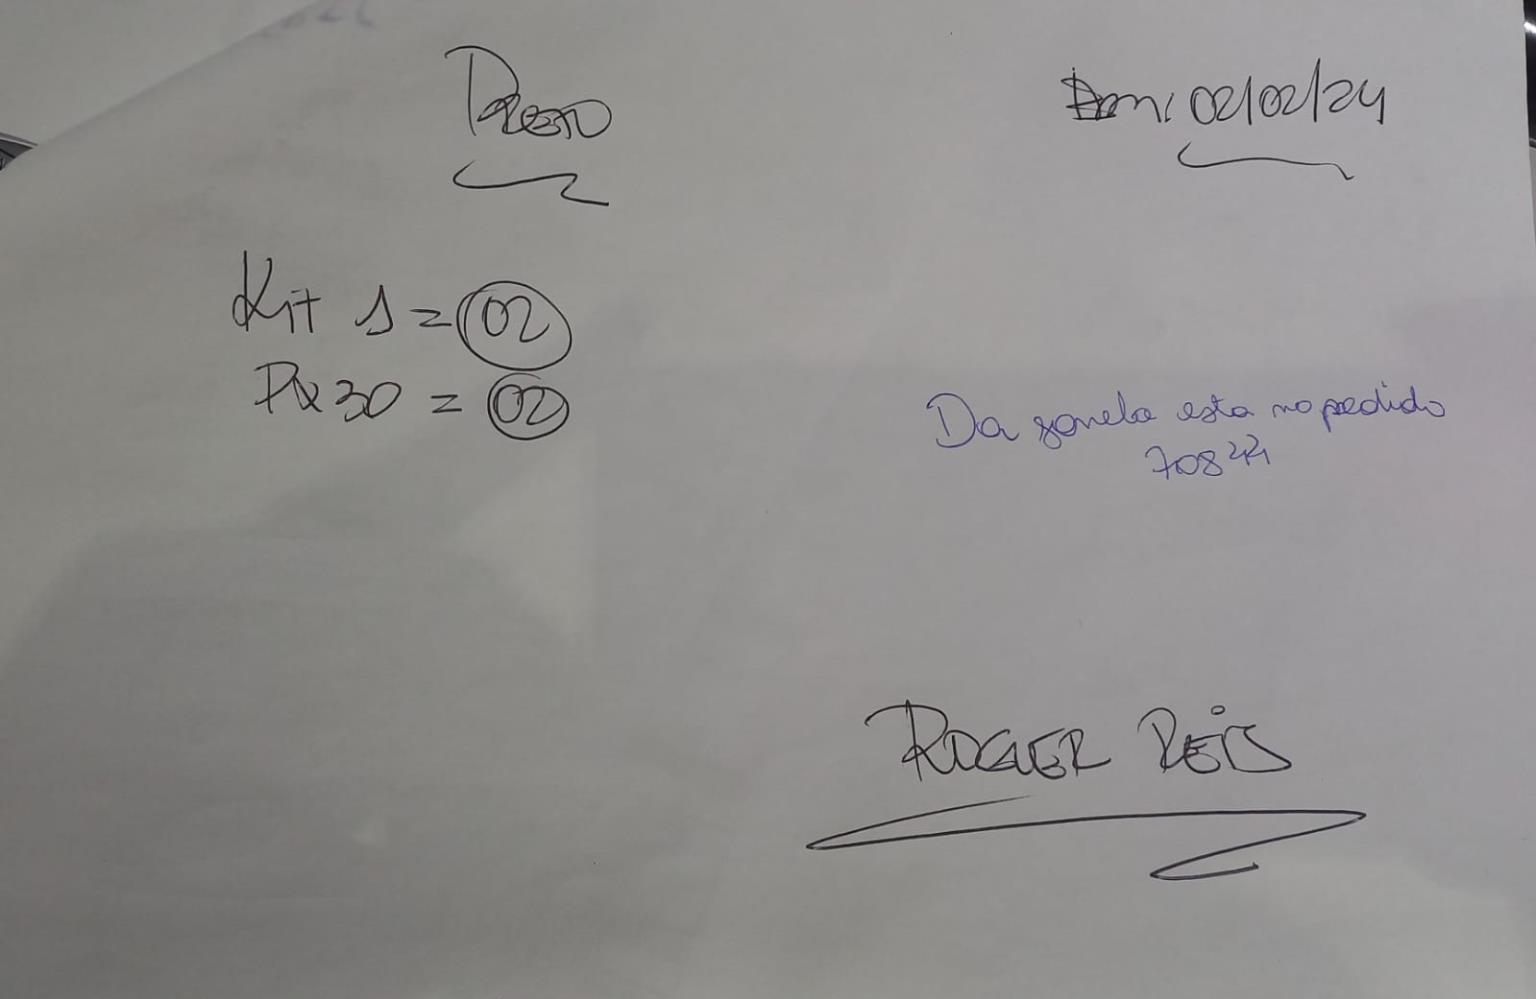 02/02/24
Kit 1 = 02
Px30 = 02
Da janela esta no pedido
70844
ROGER REIS